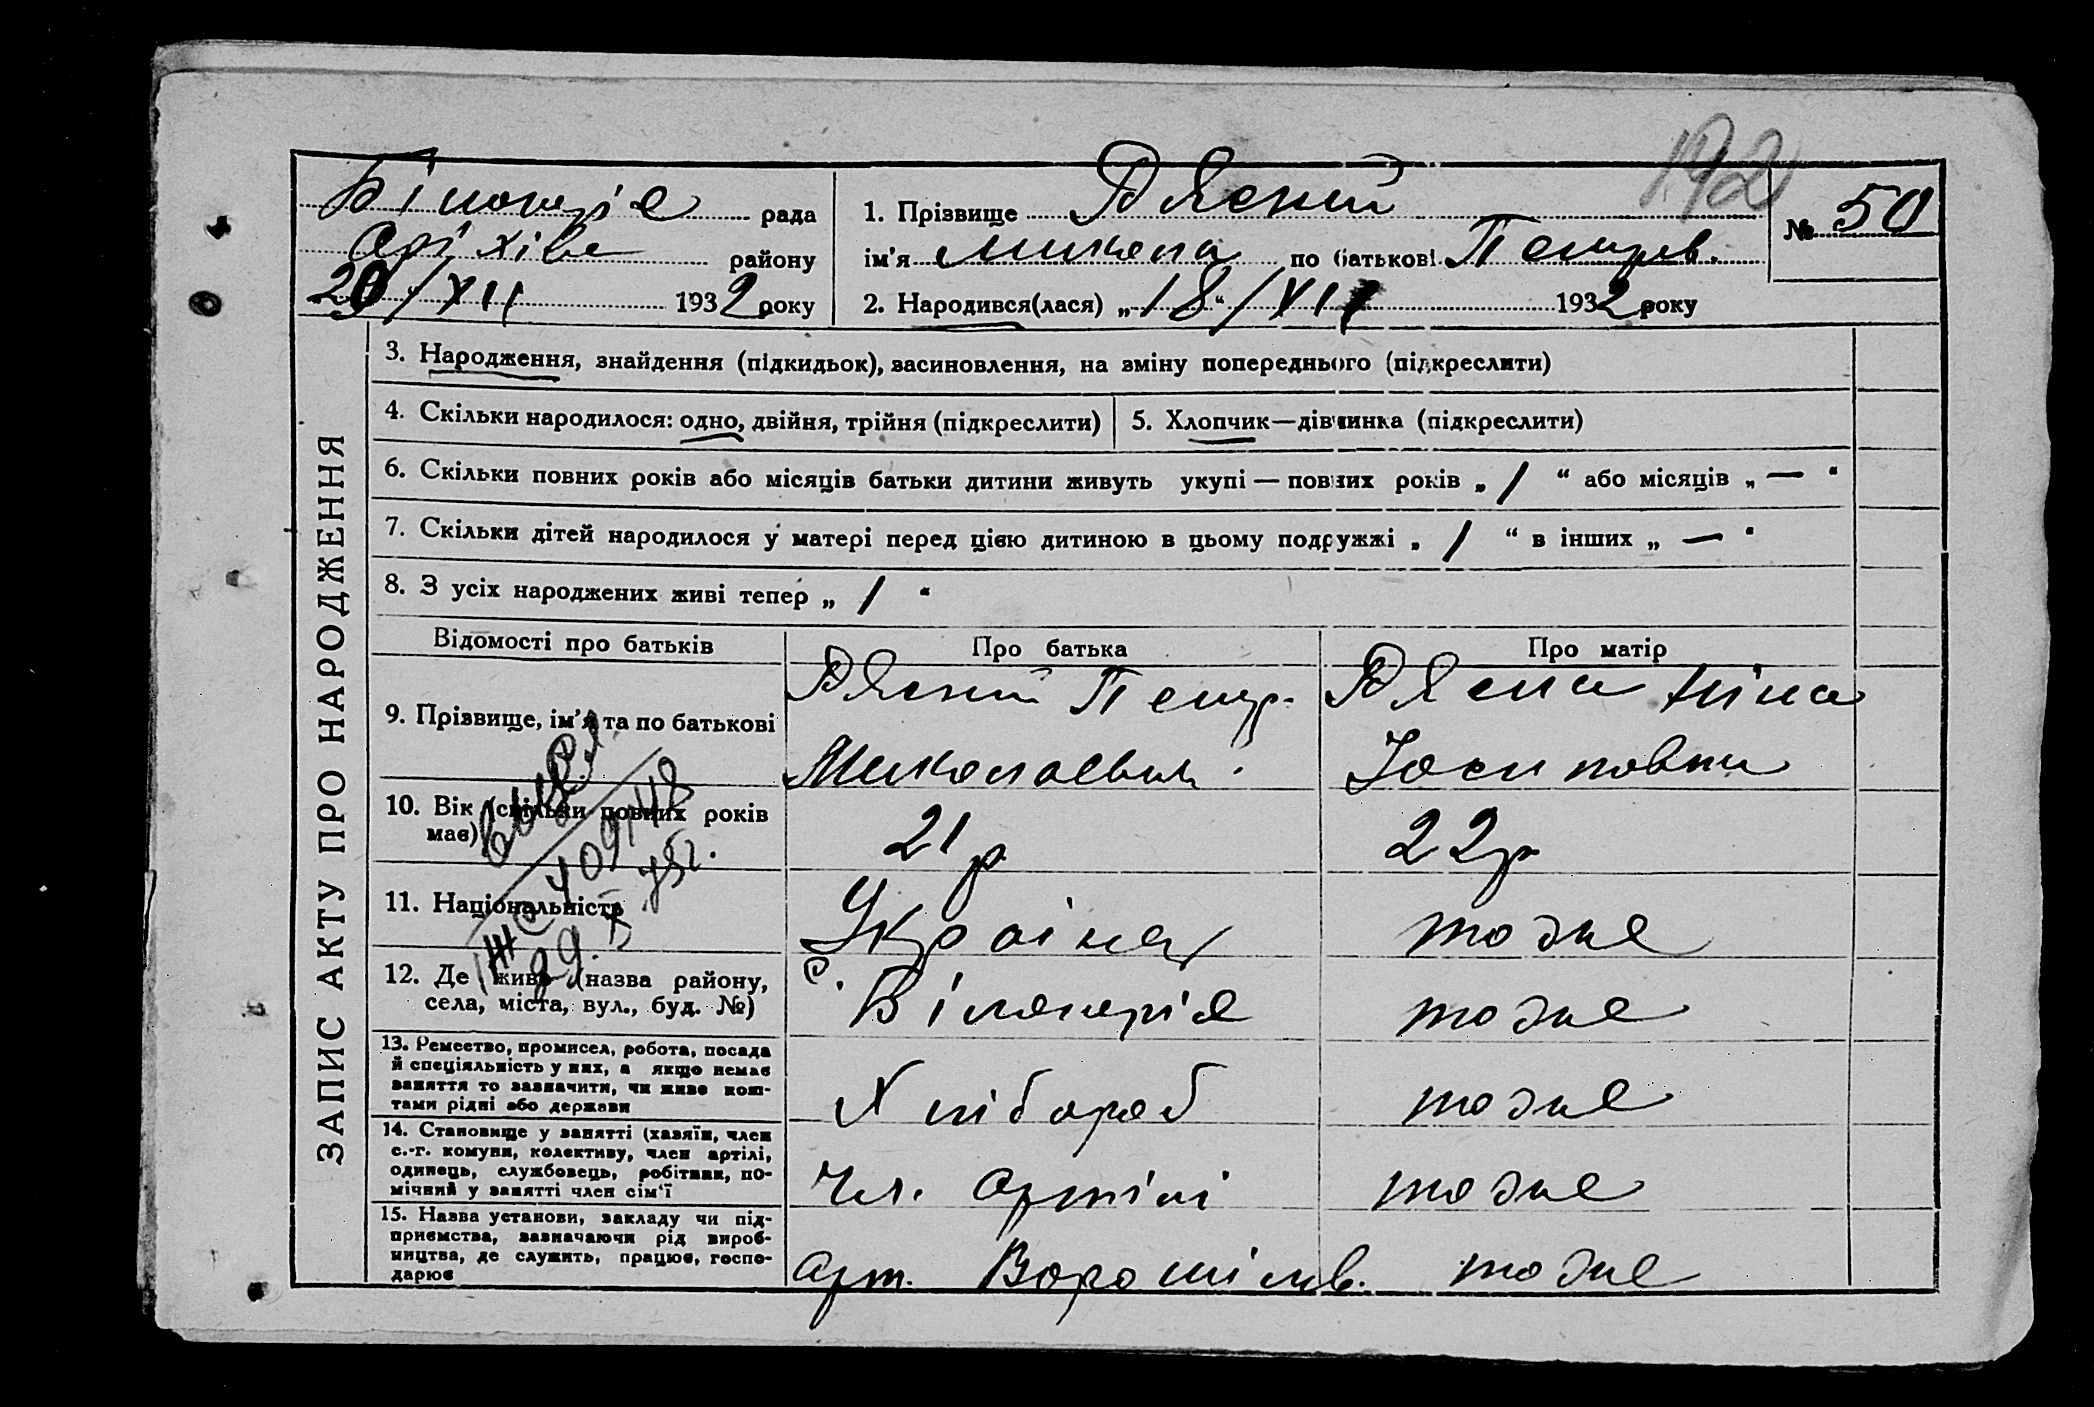 192
Білогірʼє рада
Оріхівс району
20/XII 1932 року
1. Прізвище Рясний
№ 50
імʼя Микола по батькові Петров.
2. Народився(лася) „18“/XII 1932 року
ЗАПИС АКТУ ПРО НАРОДЖЕННЯ
3. Народження, знайдення (підкидьок), засиновлення, на зміну попереднього (підкреслити)
4. Скільки народилося: одно, двійня, трійня (підкреслити)
5. Хлопчик—дівчинка (підкреслити)
6. Скільки повних років або місяців батьки дитини живуть укупі — повних років „ 1 “ або місяців „ — “
7. Скільки дітей народилося у матері перед цією дитиною в цьому подружжі „ 1 “ в інших „ — “
8. З усіх народжених живі тепер „ 1 “
Відомості про батьків
Про батька
Про матір
9. Прізвище, імʼя та по батькові
Рясний Петр.
Миколаевич.
Рясна Ніна
Йосиповни
10. Вік (скільки повних років
має)
21 р
22 р
11. Національність
Українец
тоже
12. Де живе (назва району,
села, міста, вул., буд. №)
с. Білогірʼє
тоже
13. Ремество, промисел, робота, посада
й спеціяльність у них, а якщо немає
заняття то зазначити, чи живе кош-
тами рідні або держави
Хлібороб
тоже
14. Становище у занятті (хазяїн, член
с.-г. комуни, колективу, член артілі,
одинець, службовець, робітник, по-
мічний у занятті член сімʼї
Чл. артілі
тоже
15. Назва установи, закладу чи під-
приємства, зазначаючи рід вироб-
ництва, де служить, працює, госпо-
дарює
Арт. Ворошілов.
тоже